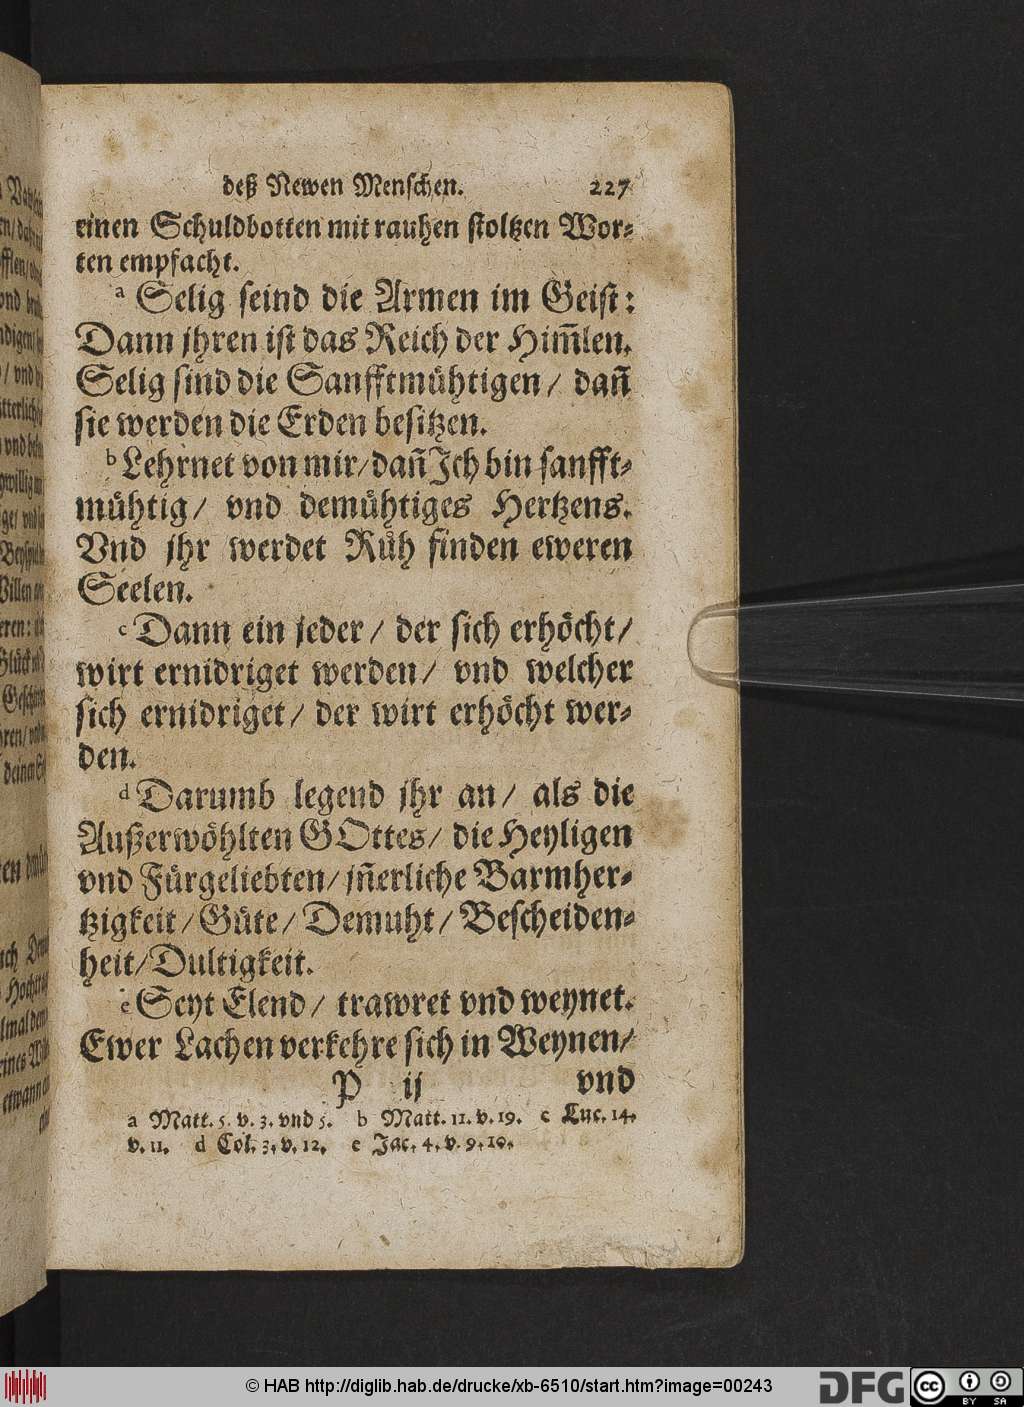 deß Newen Menschen. 227
einen Schuldbotten mit rauhen stoltzen Wor-
ten empfacht.
a Selig seind die Armen im Geist:
Dann jhren ist das Reich der Him̄len.
Selig sind die Sanfftmühtigen/ dañ
sie werden die Erden besitzen.
b Lehrnet von mir/ dañ Jch bin sanfft-
mühtig/ vnd demühtiges Hertzens.
Vnd jhr werdet Rüh finden eweren
Seelen.
c Dann ein jeder/ der sich erhöcht/
wirt ernidriget werden/ vnd welcher
sich ernidriget/ der wirt erhöcht wer-
den.
d Darumb legend jhr an/ als die
Außerwöhlten GOttes/ die Heyligen
vnd Fürgeliebten/ jñerliche Barmher-
tzigkeit/ Güte/ Demuht/ Bescheiden-
heit/ Dultigkeit.
e Seyt Elend/ trawret vnd weynet.
Ewer Lachen verkehre sich in Weynen/
P ij vnd
a Matt. 5. v. 3. vnd 5. b Matt. 11. v. 19. c Luc. 14.
v. 11. d Col. 3. v. 12. e Jac. 4. v. 9. 10.
© HAB http://diglib.hab.de/drucke/xb-6510/start.htm?image=00243
DFG
cc BY SA